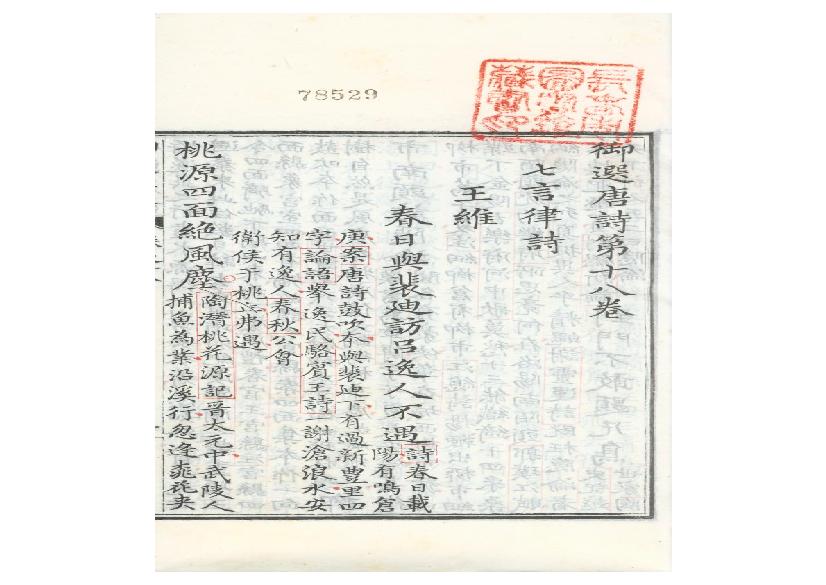 78529
御選唐詩第十八卷
七言律詩
王維
春日與裴迪訪呂逸人不遇
詩春日載
陽有鳴倉
庚案唐詩鼓吹本與裴迪下有過新豐里四
字論語舉逸民駱賓王詩一謝滄浪水安
知有逸人春秋公會
衛侯于桃丘弗遇
桃源四面絶風塵
陶潛桃花源記晉太元中武陵人
捕魚為業沿溪行忽逢桃花夾